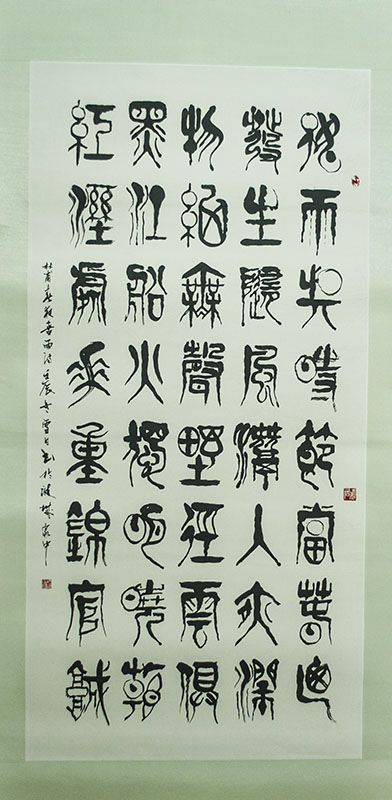 好雨知時節當春乃
發生隨風潛入夜潤
物細無聲野徑雲俱
黑江船火獨明曉看
紅濕處花重錦官城
杜甫春夜喜雨詩壬辰雪日書於城家中